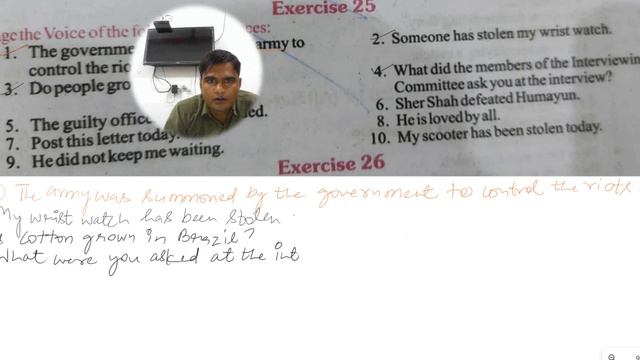 Exercise 25
ge the Voice of the fo ces:
1. The governme army to
control the rio
2. Someone has stolen my wrist watch.
3. Do people gro
4. What did the members of the Interviewin
Committee ask you at the interview?
5. The guilty offic ed.
6. Sher Shah defeated Humayun.
7. Post this letter today.
8. He is loved by all.
9. He did not keep me waiting.
10. My scooter has been stolen today.
Exercise 26
The army was summoned by the government to control the riots.
My wrist watch has been stolen.
s cotton grown in Brazil?
What were you asked at the int